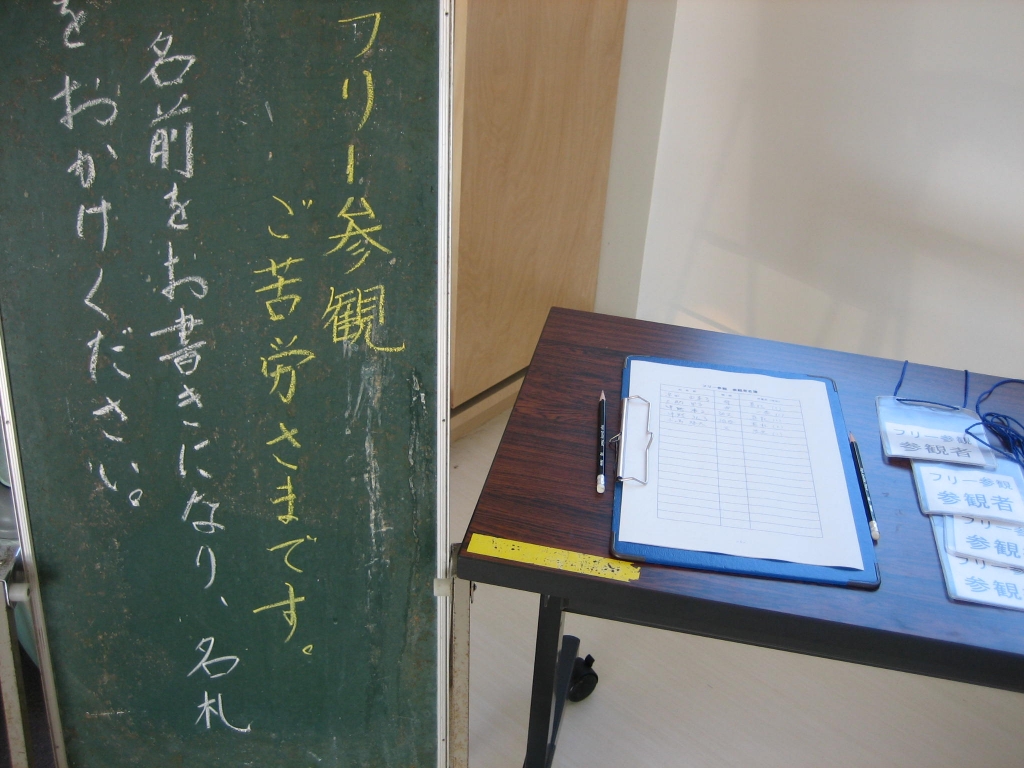 フリー参観
ご苦労さまです。
名前をお書きになり、名札
をおかけください。
フリー参観
参観者
フリー参観
参観者
フリー参
参観
フリー参
参観